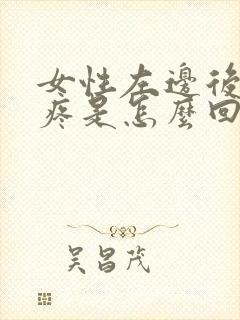 女性左邊後
疼是怎麼回
吴昌茂